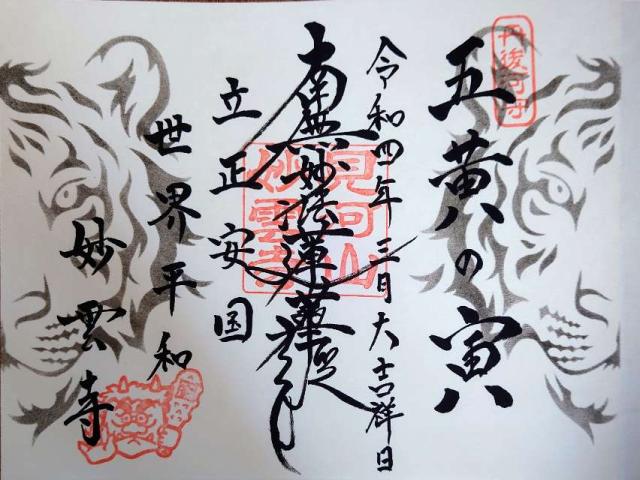 丹後河守
五黄の寅
令和四年三月大吉祥日
南無妙法蓮華経
見河山
妙雲寺
立正安国
世界平和
妙雲寺